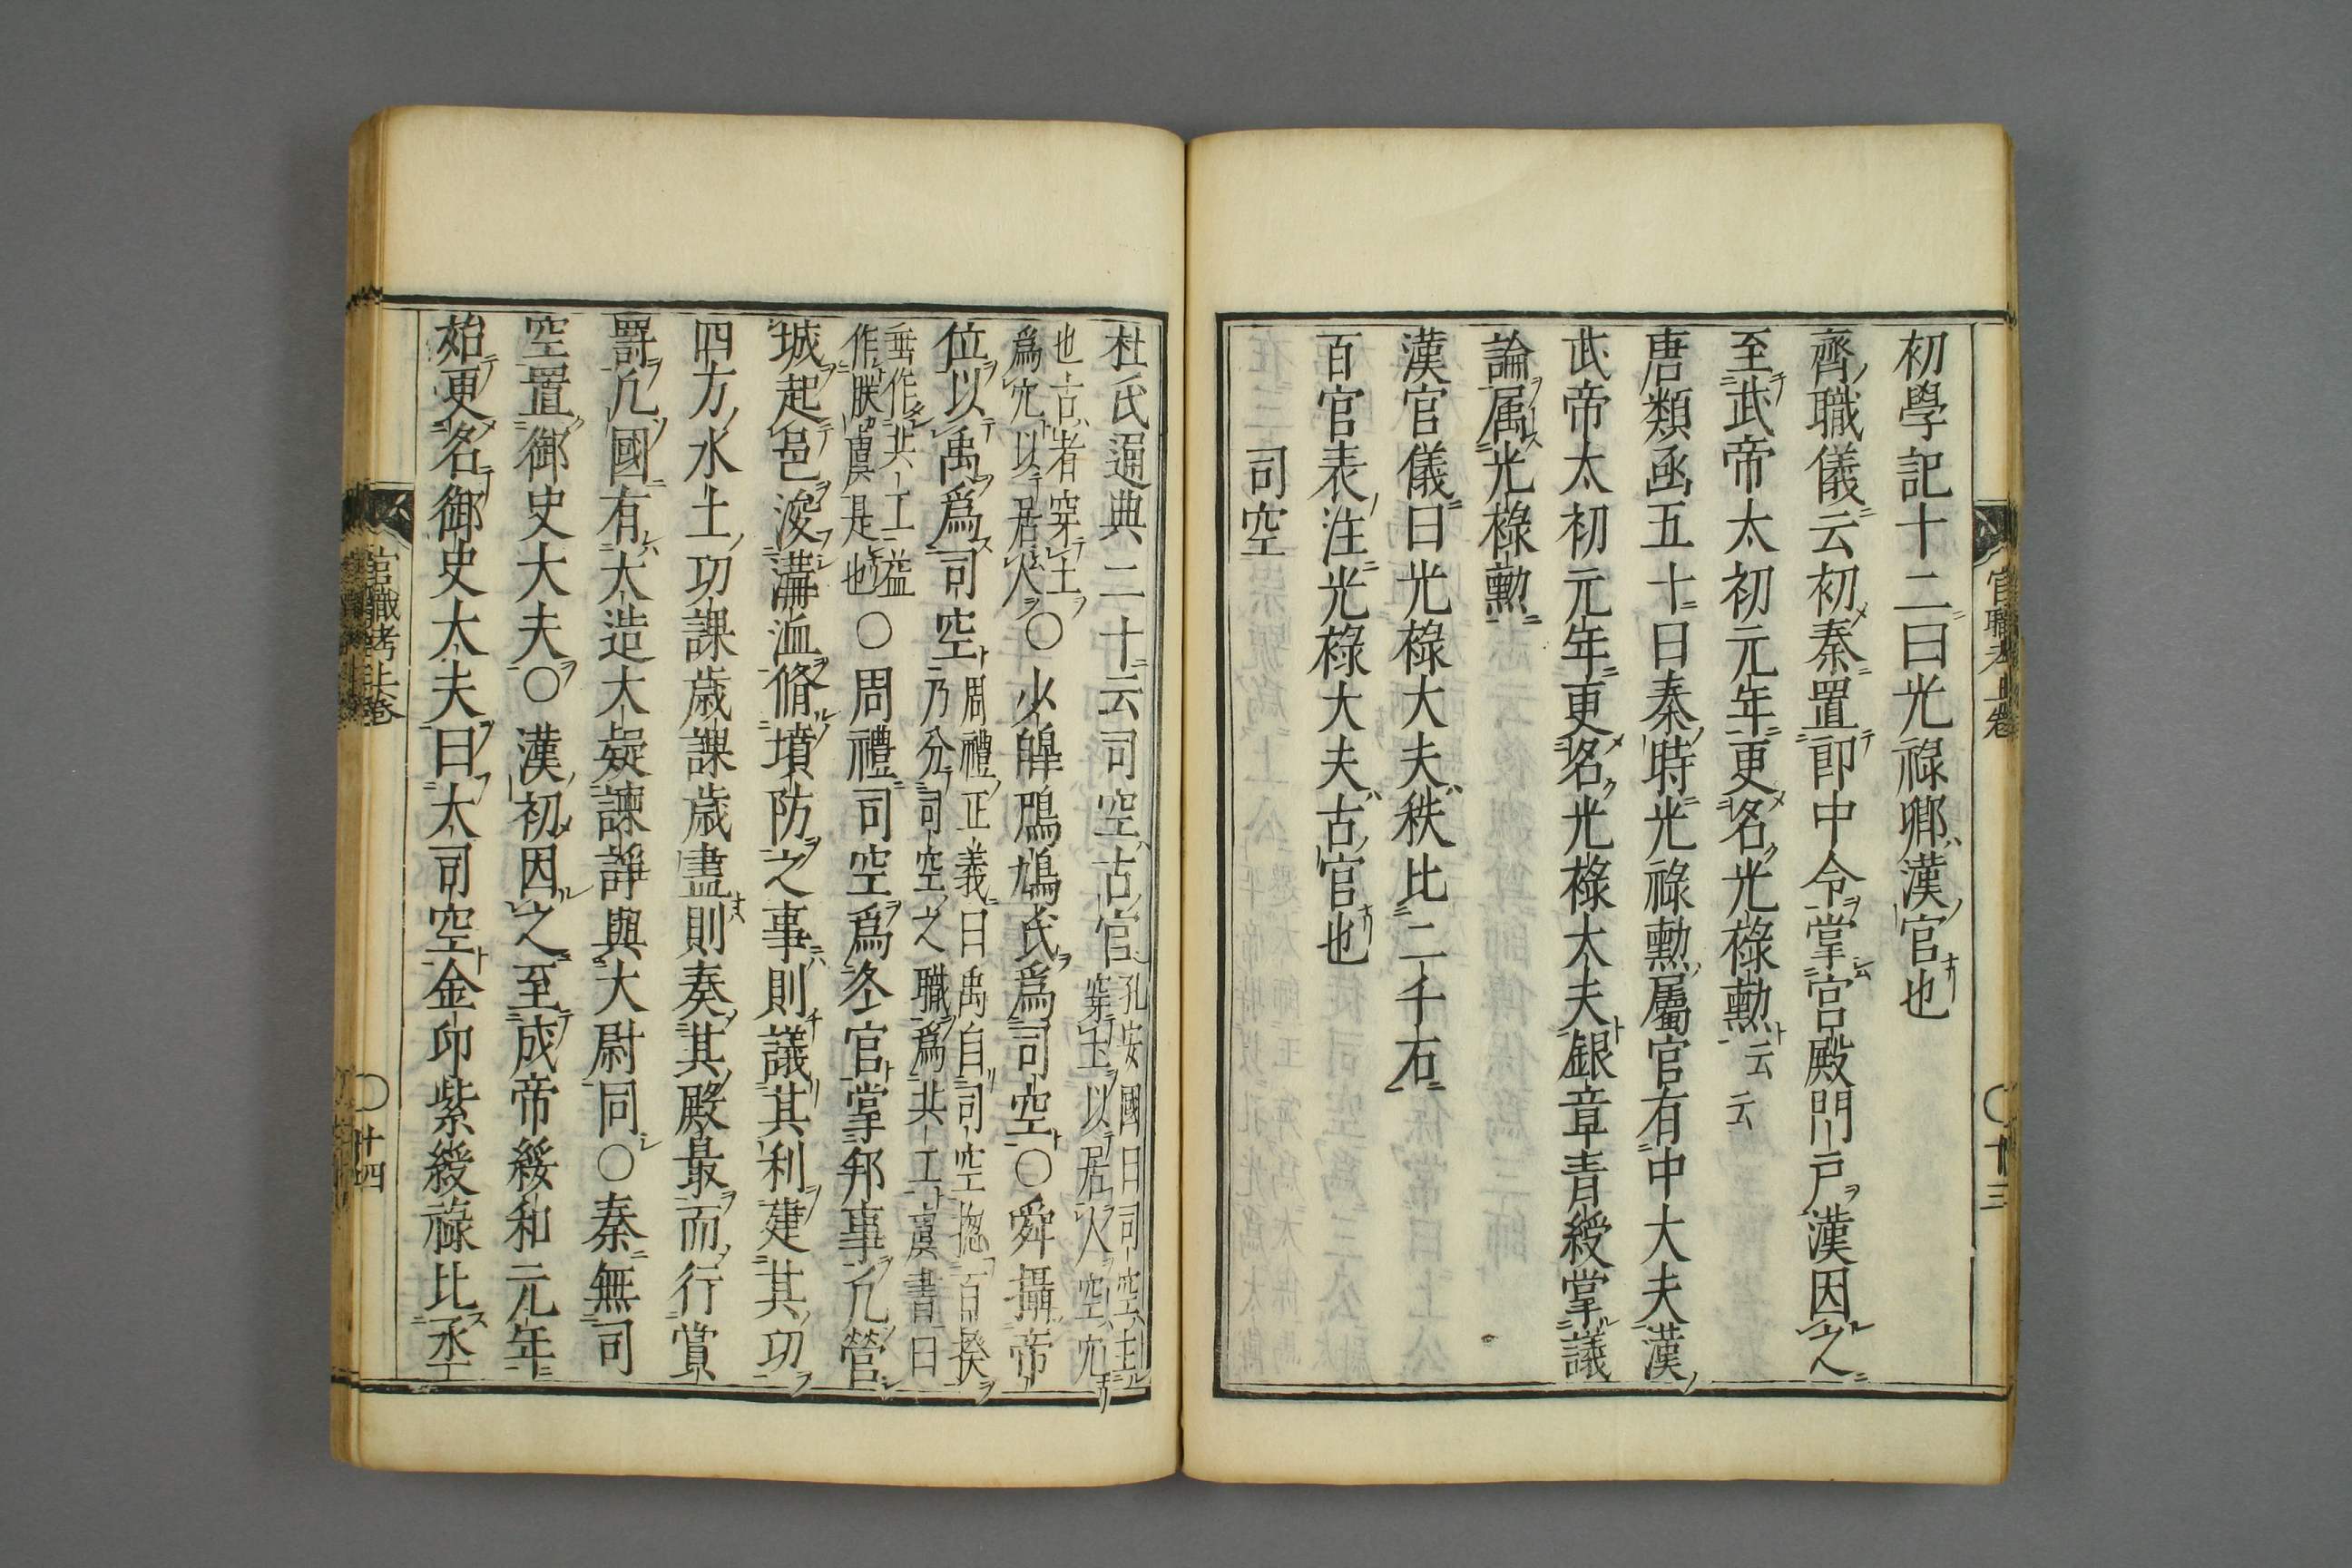 初學記十二曰光祿卿漢官也
齊職儀云初秦置郎中令掌宮殿門戶漢因之
至武帝太初元年更名光祿勳云云
唐類函五十曰秦時光祿勳屬官有中大夫漢
武帝太初元年更名光祿大夫銀章青綬掌議
論属光祿勳
漢官儀曰光祿大夫秩比二千石
百官表注光祿大夫古官也
司空
官職考上卷
〇十三
杜氏通典二十云司空古官孔安國曰司空主
穿土以居人空穴
也古者穿土
爲穴以居人〇少皞鳲鳩氏爲司空〇舜攝帝
位以禹爲司空周禮正義曰禹自司空揔百揆
乃分司空之職爲共工虞書曰
垂作共工益
作朕虞是也〇周禮司空爲冬官掌邦事凡營
城起邑浚溝洫脩墳防之事則議其利建其功
四方水土功課歲課歲盡則奏其殿最而行賞
罰凡國有大造大疑諫諍與大尉同〇秦無司
空置御史大夫〇漢初因之至成帝綏和元年
始更名御史大夫曰大司空金印紫綬祿比丞
官職考上卷
〇廿四